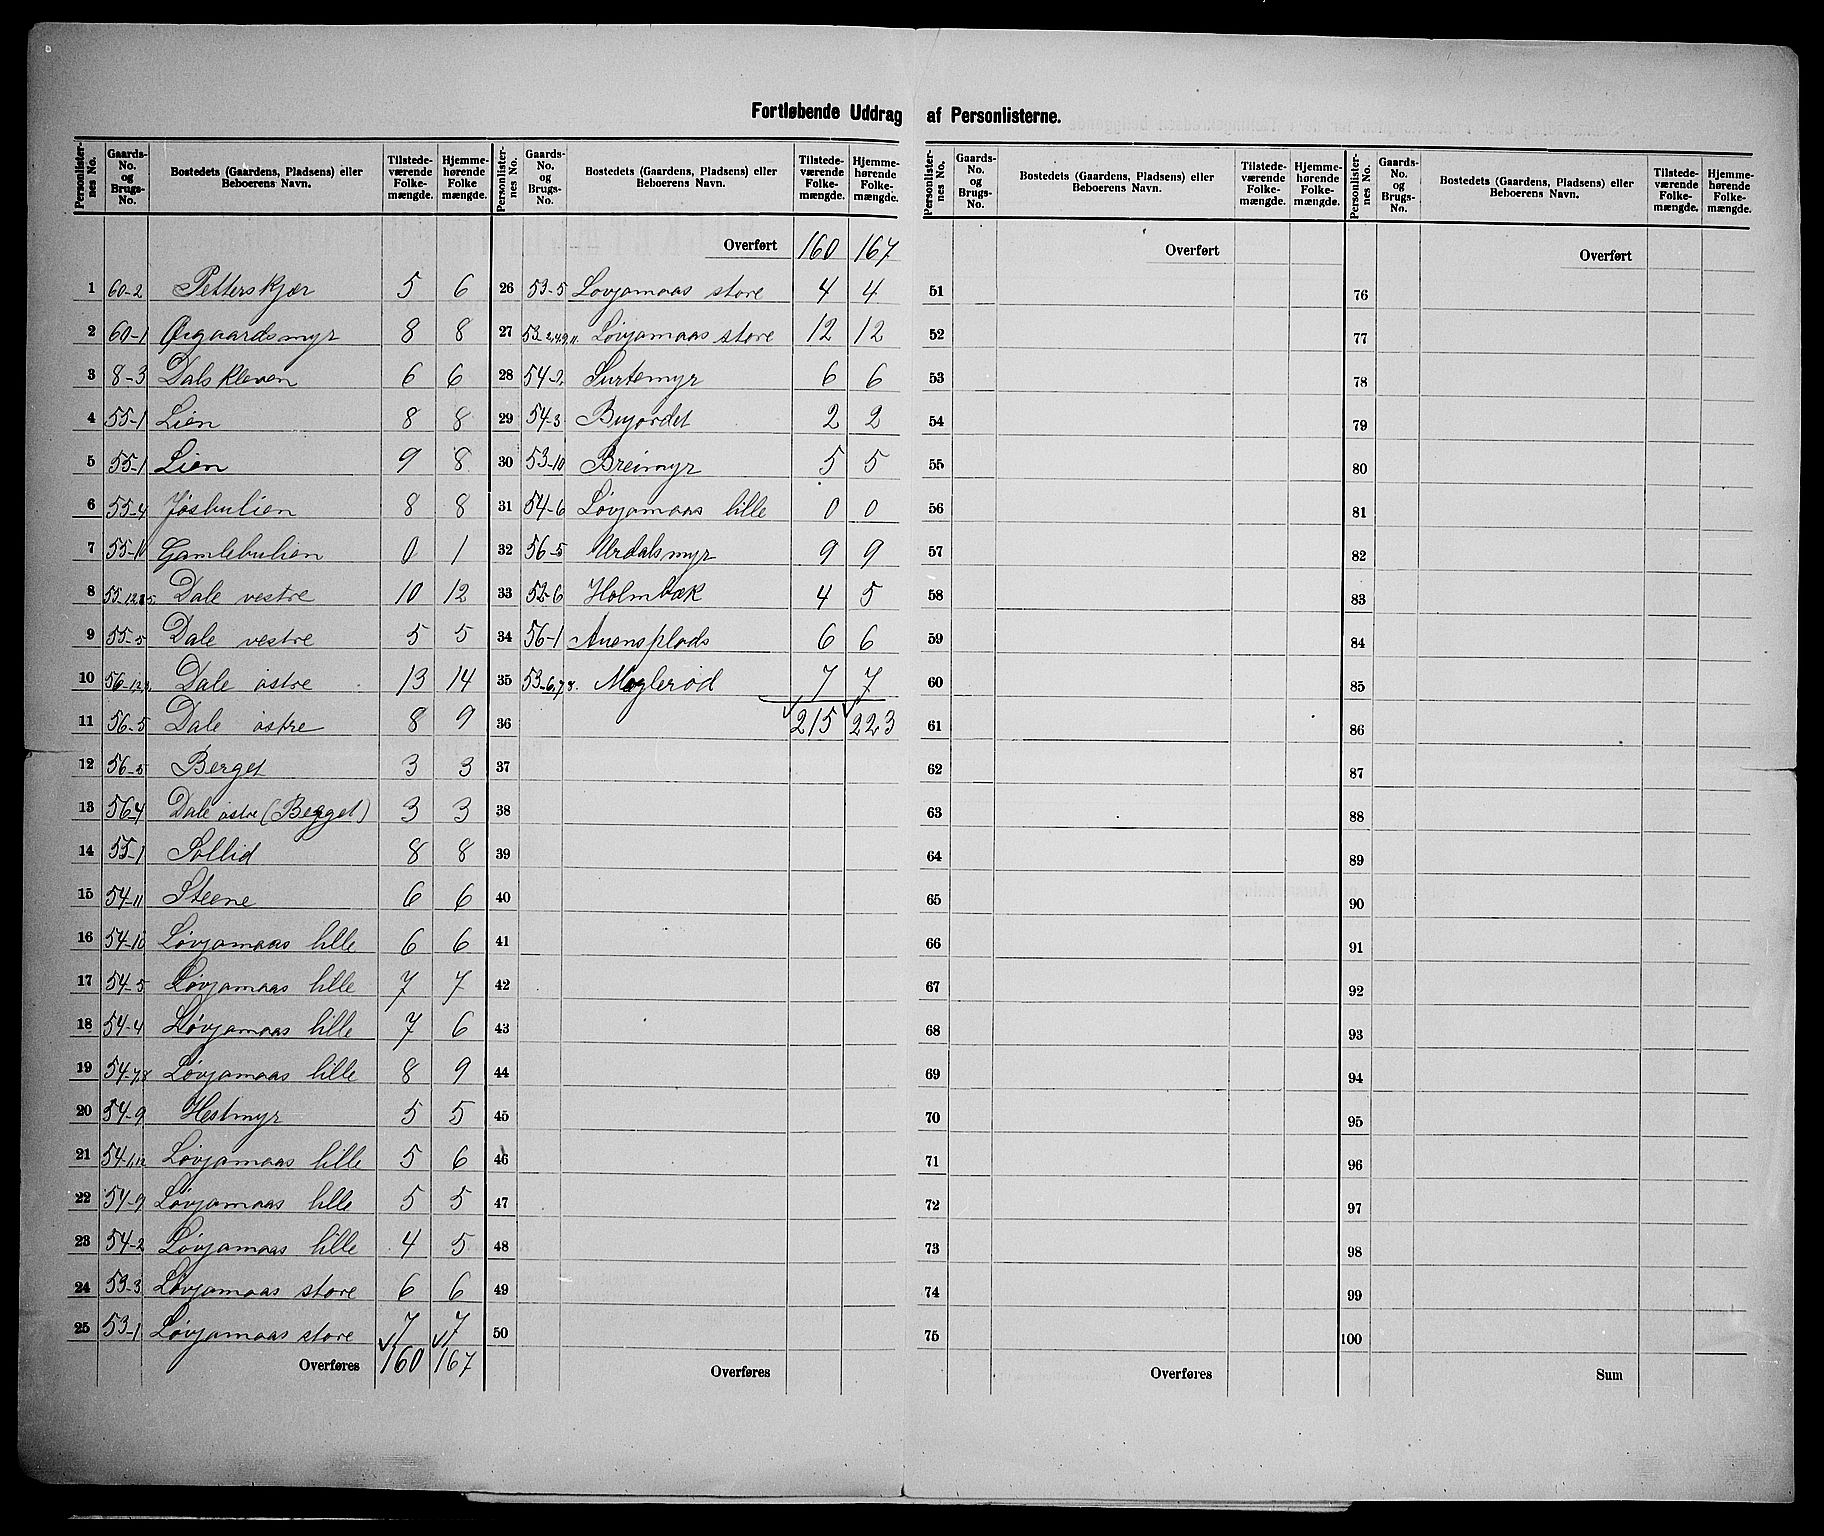 Fortløbende Uddrag af Personlisterne.
Personlisternes No. | Gaards-No. og Brugs-No. | Bostedets (Gaardens, Pladsens) eller Beboerens Navn. | Tilstedeværende Folkemængde. | Hjemmehørende Folkemængde.
1 60-2 Petterskjær 5 6
2 60-1 Øigaardsmyr 8 8
3 8-3 Dalskleven 6 6
4 55-1 Lien 8 8
5 55-1 Lien 9 8
6 55-4 Jøsbulien 8 8
7 55-10 Gamlebulien 0 1
8 Dale vestre 10 12
9 55-5 Dale vestre 5 5
10 Dale østre 13 14
11 56-5 Dale østre 8 9
12 56-5 Berget 3 3
13 56-4 Dale østre (Berget) 3 3
14 55-1 Sollid 8 8
15 54-11 Steene 6 6
16 54-10 Løvjomaas lille 6 6
17 54-5 Løvjomaas lille 7 7
18 54-4 Løvjomaas lille 7 6
19 54-7,8 Løvjomaas lille 8 9
20 54-9 Hestmyr 5 5
21 54-1,12 Løvjomaas lille 5 6
22 54-9 Løvjomaas lille 5 5
23 54-2 Løvjomaas lille 4 5
24 53-3 Løvjomaas store 6 6
25 53-1 Løvjomaas store 7 7
Overføres 160 167
Personlisternes No. | Gaards-No. og Brugs-No. | Bostedets (Gaardens, Pladsens) eller Beboerens Navn. | Tilstedeværende Folkemængde. | Hjemmehørende Folkemængde.
Overført 160 167
26 53-5 Løvjomaas store 4 4
27 53-2,4,9,11. Løvjomaas store 12 12
28 54-2, Surtemyr 6 6
29 54-3 Byjordet 2 2
30 53-10 Breimyr 5 5
31 54-6 Løvjomaas lille 0 0
32 56-5 Urdalsmyr 9 9
33 Holmbæk 4 5
34 56-1 Auensplads 6 6
35 53-6,7,8. Møglerød 7 7
36 215 223
37
38
39
40
41
42
43
44
45
46
47
48
49
50
Overføres
Personlisternes No. | Gaards-No. og Brugs-No. | Bostedets (Gaardens, Pladsens) eller Beboerens Navn. | Tilstedeværende Folkemængde. | Hjemmehørende Folkemængde.
Overført
51
52
53
54
55
56
57
58
59
60
61
62
63
64
65
66
67
68
69
70
71
72
73
74
75
Overføres
Personlisternes No. | Gaards-No. og Brugs-No. | Bostedets (Gaardens, Pladsens) eller Beboerens Navn. | Tilstedeværende Folkemængde. | Hjemmehørende Folkemængde.
Overført
76
77
78
79
80
81
82
83
84
85
86
87
88
89
90
91
92
93
94
95
96
97
98
99
100
Sum